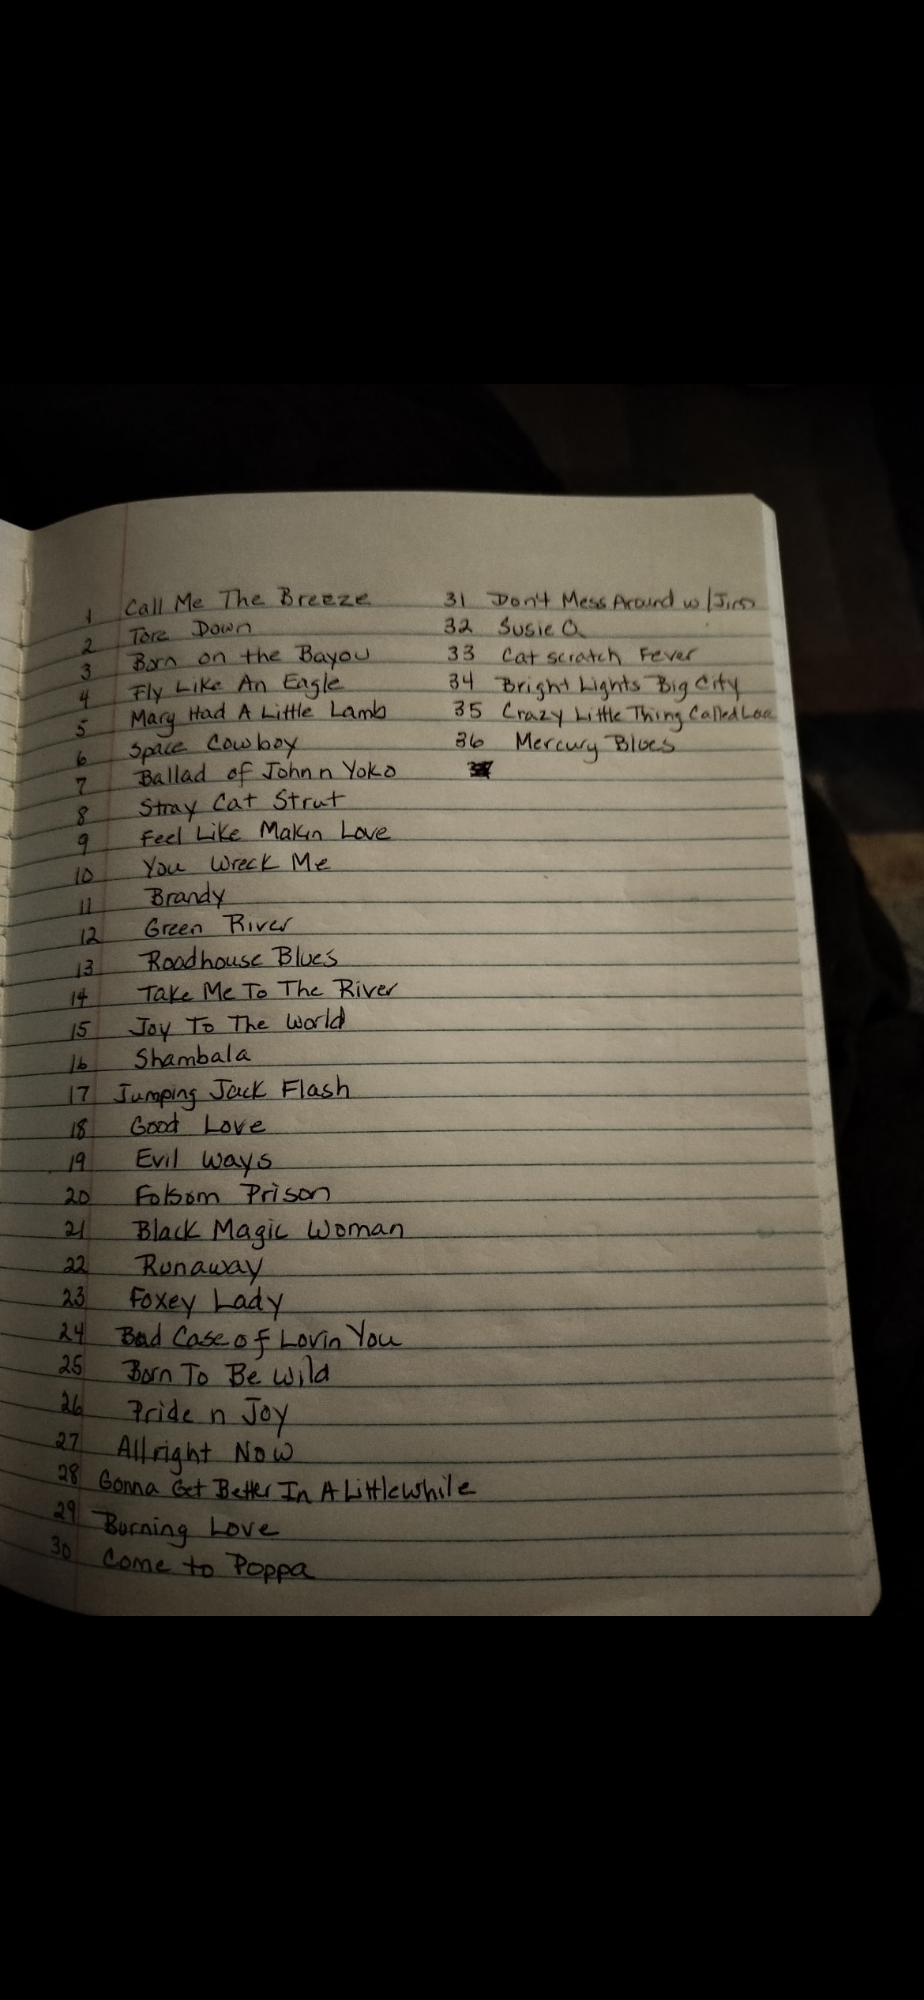 1 Call Me The Breeze
2 Tore Down
3 Born on the Bayou
4 Fly Like An Eagle
5 Mary Had A Little Lamb
6 Space Cowboy
7 Ballad of John n Yoko
8 Stray Cat Strut
9 Feel Like Makin Love
10 You Wreck Me
11 Brandy
12 Green River
13 Roadhouse Blues
14 Take Me To The River
15 Joy To The World
16 Shambala
17 Jumping Jack Flash
18 Good Love
19 Evil Ways
20 Folsom Prison
21 Black Magic Woman
22 Runaway
23 Foxey Lady
24 Bad Case of Lovin You
25 Born To Be Wild
26 Pride n Joy
27 Allright Now
28 Gonna Get Better In A Littlewhile
29 Burning Love
30 Come to Poppa
31 Don't Mess Around w/Jim
32 Susie Q
33 Cat scratch Fever
34 Bright Lights Big City
35 Crazy Little Thing Called Love
36 Mercury Blues